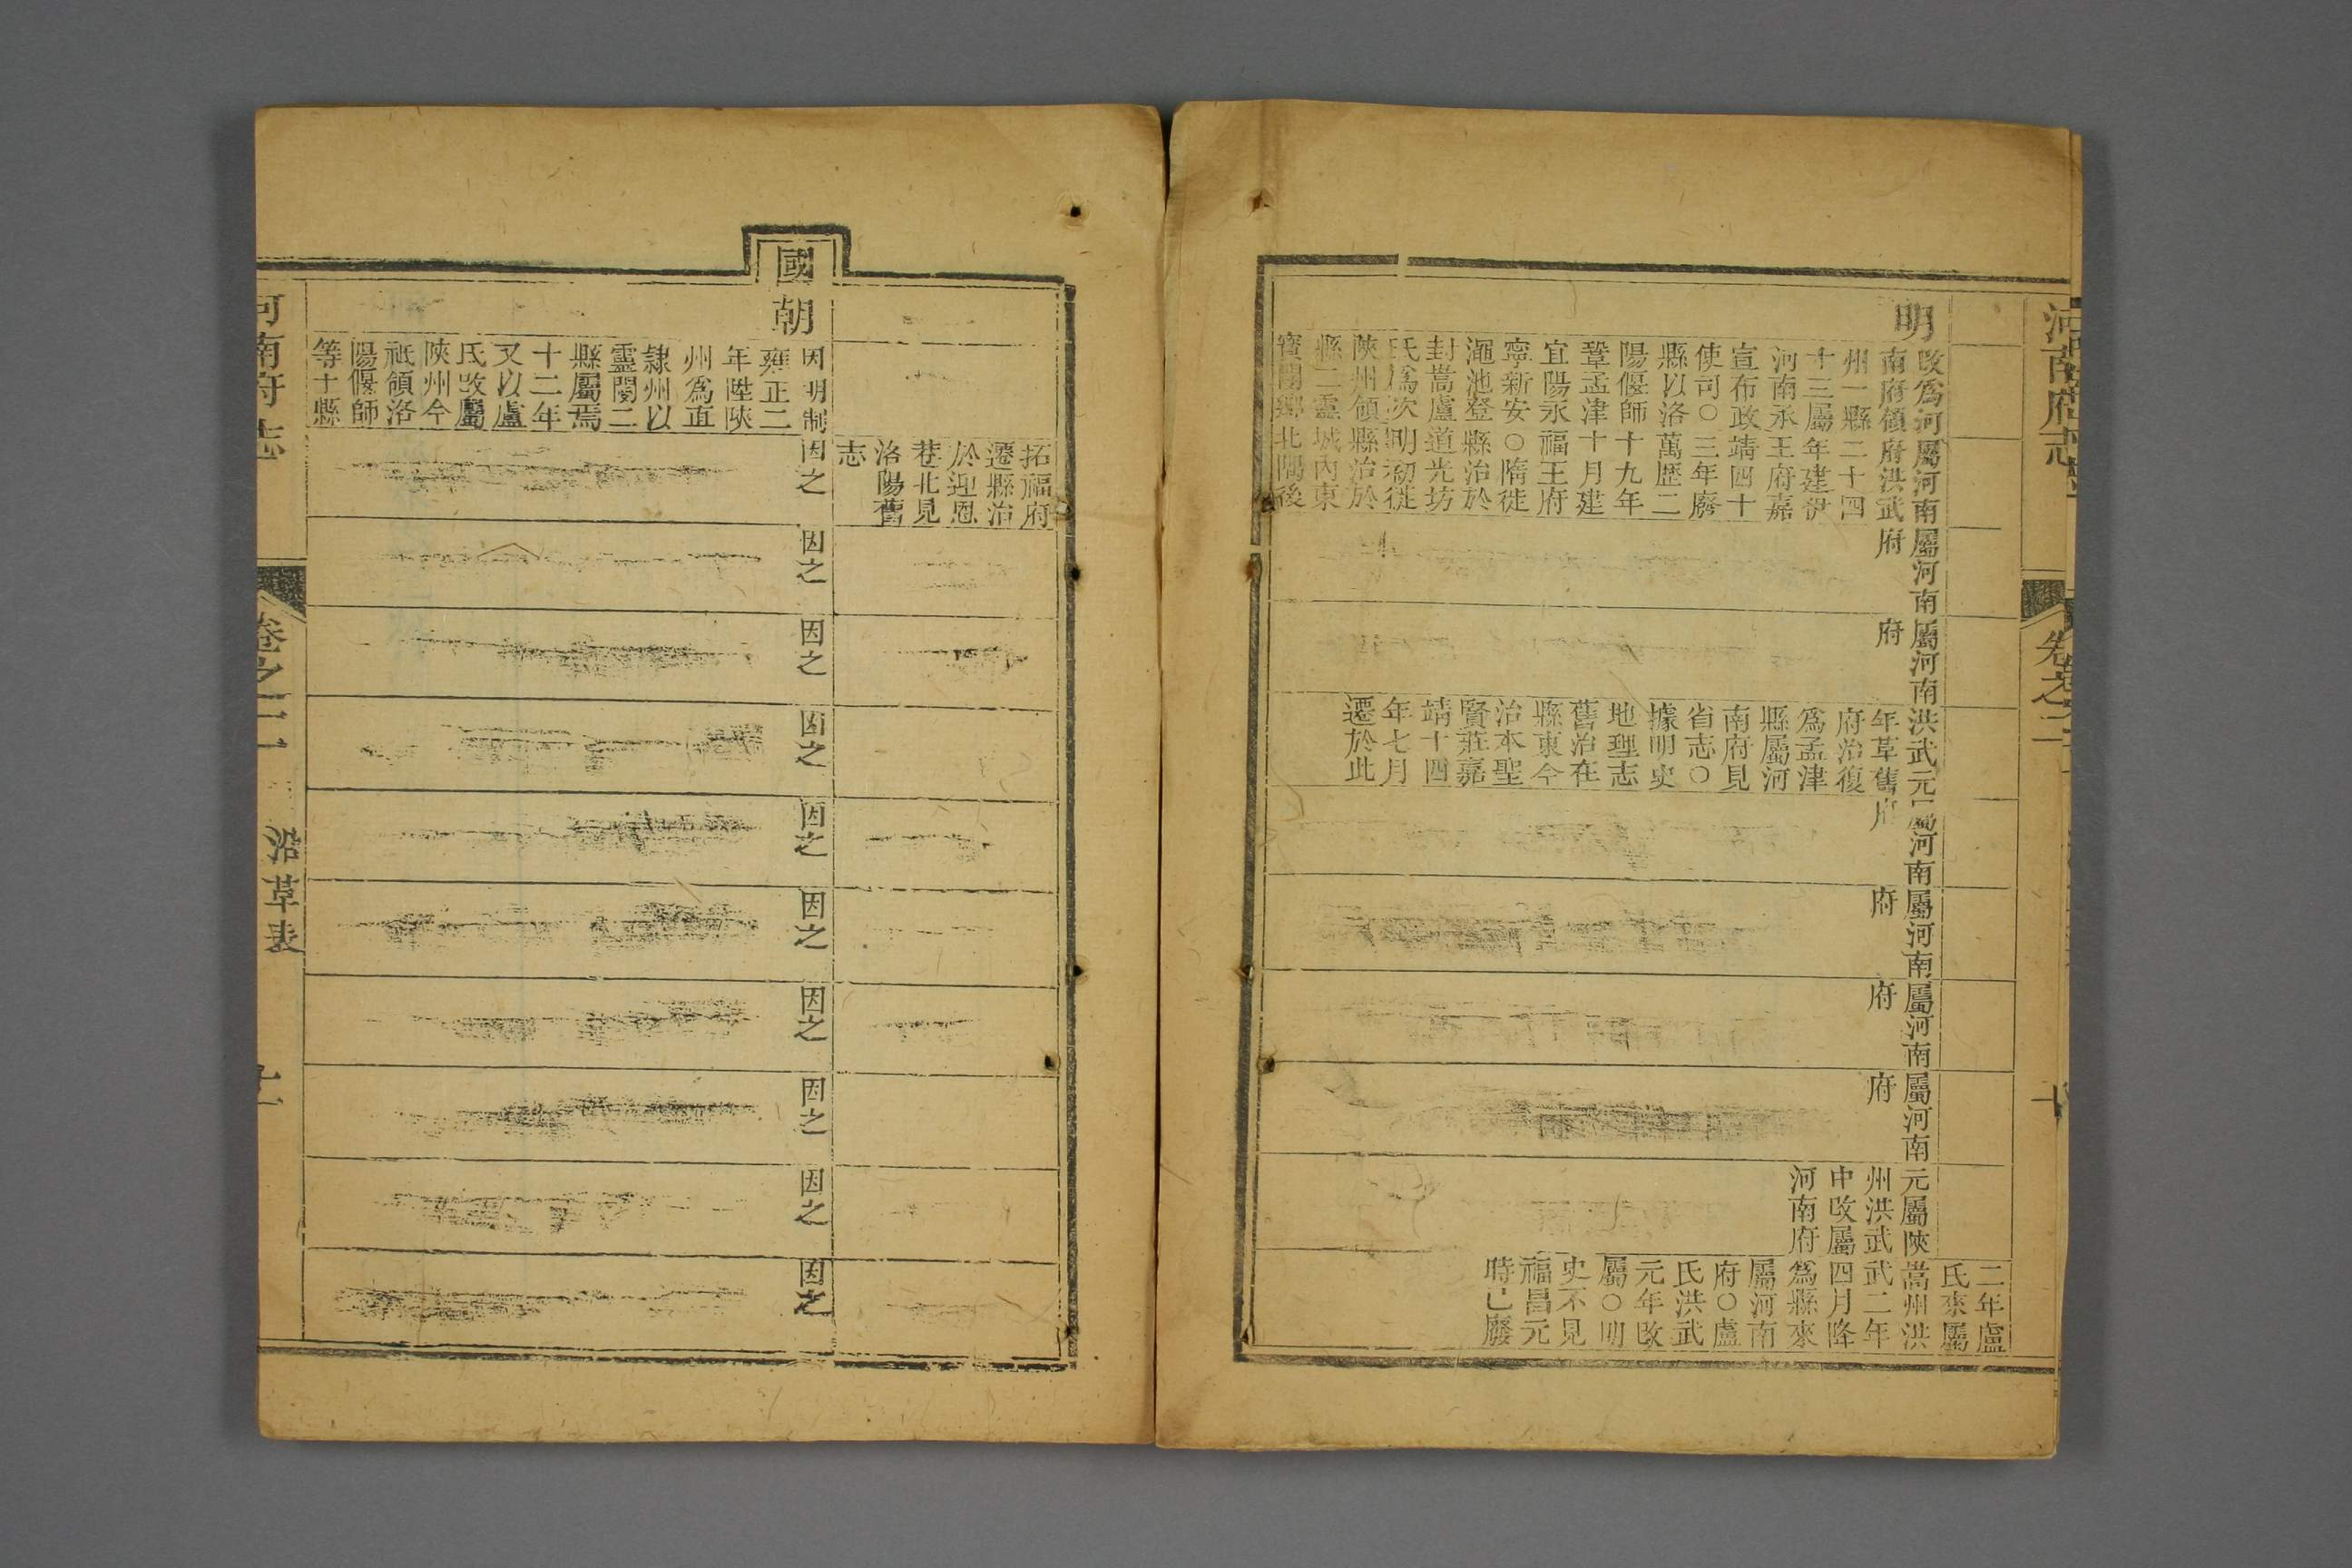 河南府志
卷之二
十
明
改爲河
南府領
州一縣
十三屬
河南承
宣布政
使司○
縣以洛
陽偃師
鞏孟津
宜陽永
寧新安
澠池登
封嵩盧
氏爲次
陝州領
縣二靈
寶閿鄉
屬河南
府洪武
二十四
年建伊
王府嘉
靖四十
三年廢
萬歷二
十九年
十月建
福王府
○隋徙
縣治於
道光坊
明初徙
縣治於
城內東
北隅後
屬河南
府
屬河南
府
洪武元
年革舊
府治復
爲孟津
縣屬河
南府見
省志○
據明史
地理志
舊治在
縣東今
治本聖
賢莊嘉
靖十四
年七月
遷於此
屬河南
府
屬河南
府
屬河南
府
屬河南
府
元屬陝
州洪武
中改屬
河南府
二年盧
氏來屬
嵩州洪
武二年
四月降
爲縣來
屬河南
府○盧
氏洪武
元年改
屬○明
史不見
福昌元
時已廢
拓福府
遷縣治
於迎恩
巷北見
洛陽舊
志
國朝
因明制
雍正二
年陞陝
州爲直
隸州以
靈閿二
縣屬焉
十二年
又以盧
氏改屬
陝州今
祗領洛
陽偃師
等十縣
因之
因之
因之
因之
因之
因之
因之
因之
因之
因之
河南府志
卷之二
沿革表
十一